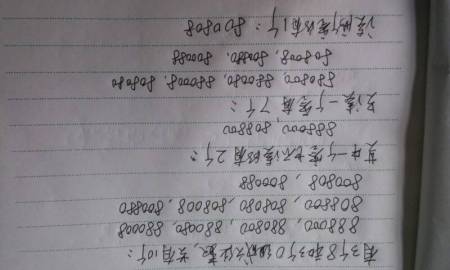 用3个8和3个0组成六位数,共有10个:
888000, 880800, 880080, 880008
808800, 808080, 808008, 800880
800808, 800088
其中一个零也不读的有2个:
888000, 808800
只读一个零有7个:
880800, 880080, 880008, 808080
808008, 800880, 800088
读两个零的有1个: 800808